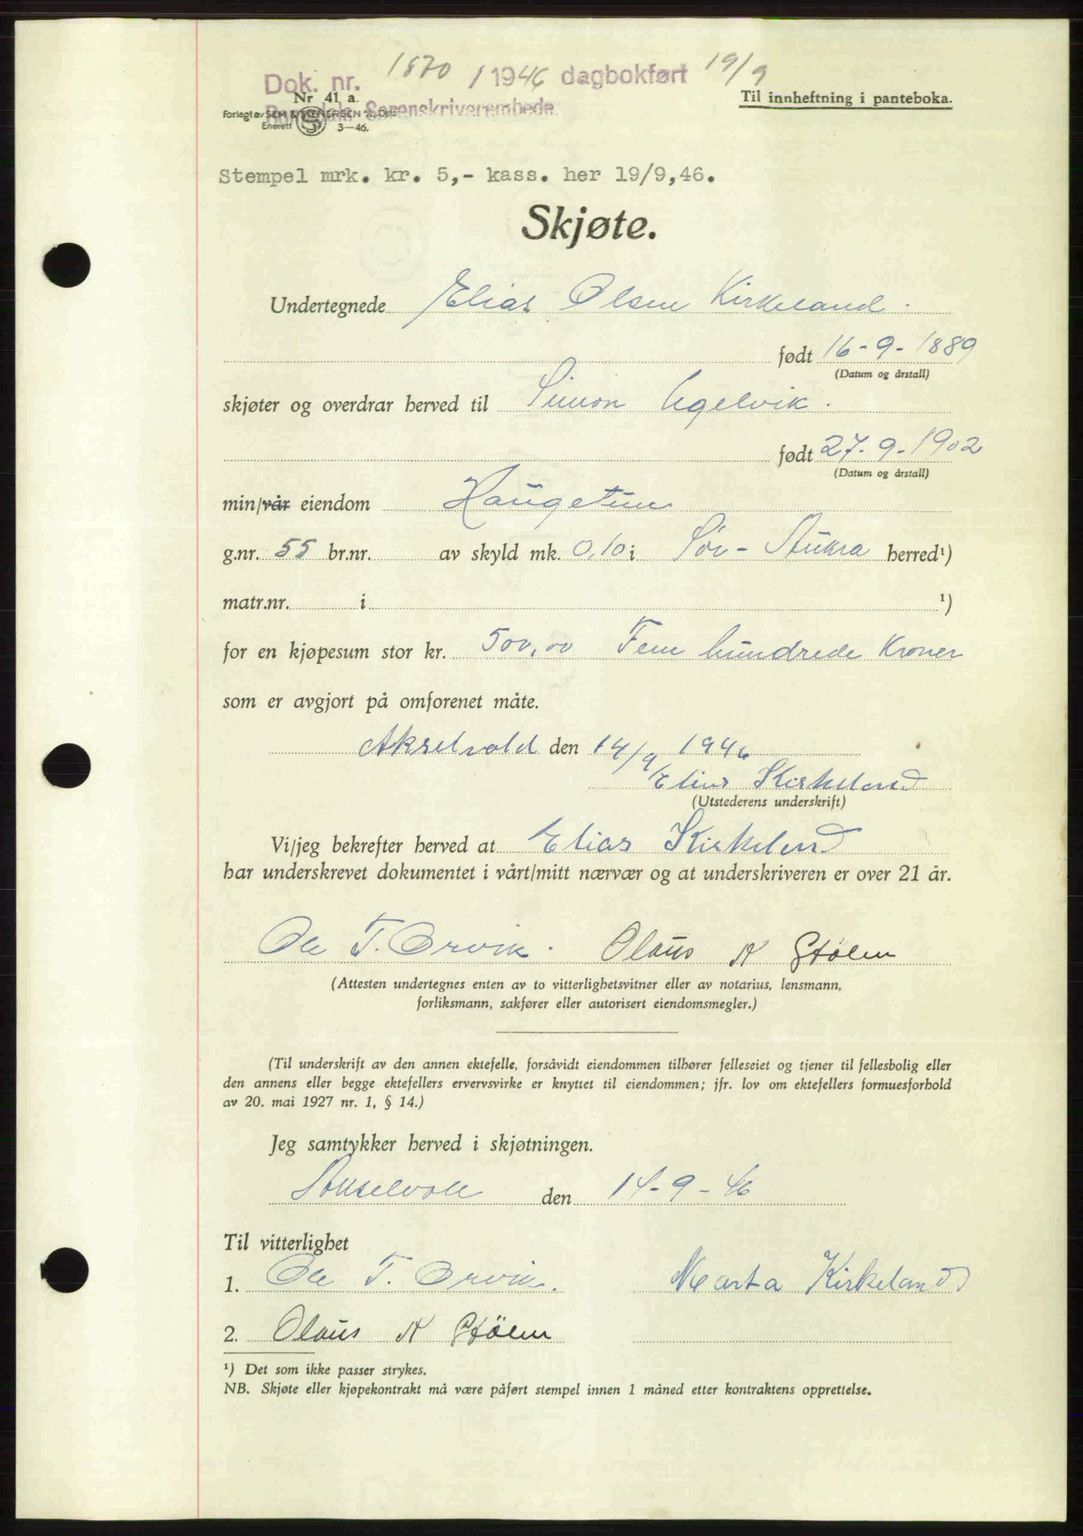 Dok. nr. 1870 / 1946 dagbokført 19/9
Nr 41 a.
Sorenskriverembede.
Forlagt av SEM & STENERSEN A/S, Oslo
Enerett 3—46.
Til innheftning i panteboka.
Stempel mrk. kr. 5,- kass. her 19/9,46.
Skjøte.
Undertegnede Elias Olsen Kirkeland.
født 16-9-1889
(Datum og årstall)
skjøter og overdrar herved til Simon Ugelvik.
født 27-9-1902
(Datum og årstall)
min/vår eiendom Haugetun
g.nr. 55 br.nr. av skyld mk. 0,10 i Sør-Aukra herred¹)
matr.nr. i ¹)
for en kjøpesum stor kr. 500,00 Fem hundrede Kroner
som er avgjort på omforenet måte.
Akselvold den 14/9 1946
Elias Kirkeland
(Utstederens underskrift)
Vi/jeg bekrefter herved at Elias Kirkeland
har underskrevet dokumentet i vårt/mitt nærvær og at underskriveren er over 21 år.
Ole T. Orvik. Olaus N Stølen
(Attesten undertegnes enten av to vitterlighetsvitner eller av notarius, lensmann,
forliksmann, sakfører eller autorisert eiendomsmegler.)
(Til underskrift av den annen ektefelle, forsåvidt eiendommen tilhører felleseiet og tjener til fellesbolig eller
den annens eller begge ektefellers ervervsvirke er knyttet til eiendommen; jfr. lov om ektefellers formuesforhold
av 20. mai 1927 nr. 1, § 14.)
Jeg samtykker herved i skjøtningen.
den 14-9-46
Til vitterlighet
1. Ole T. Orvik. Marta Kirkeland
2. Olaus N Stølen
¹) Det som ikke passer strykes.
NB. Skjøte eller kjøpekontrakt må være påført stempel innen 1 måned etter kontraktens opprettelse.